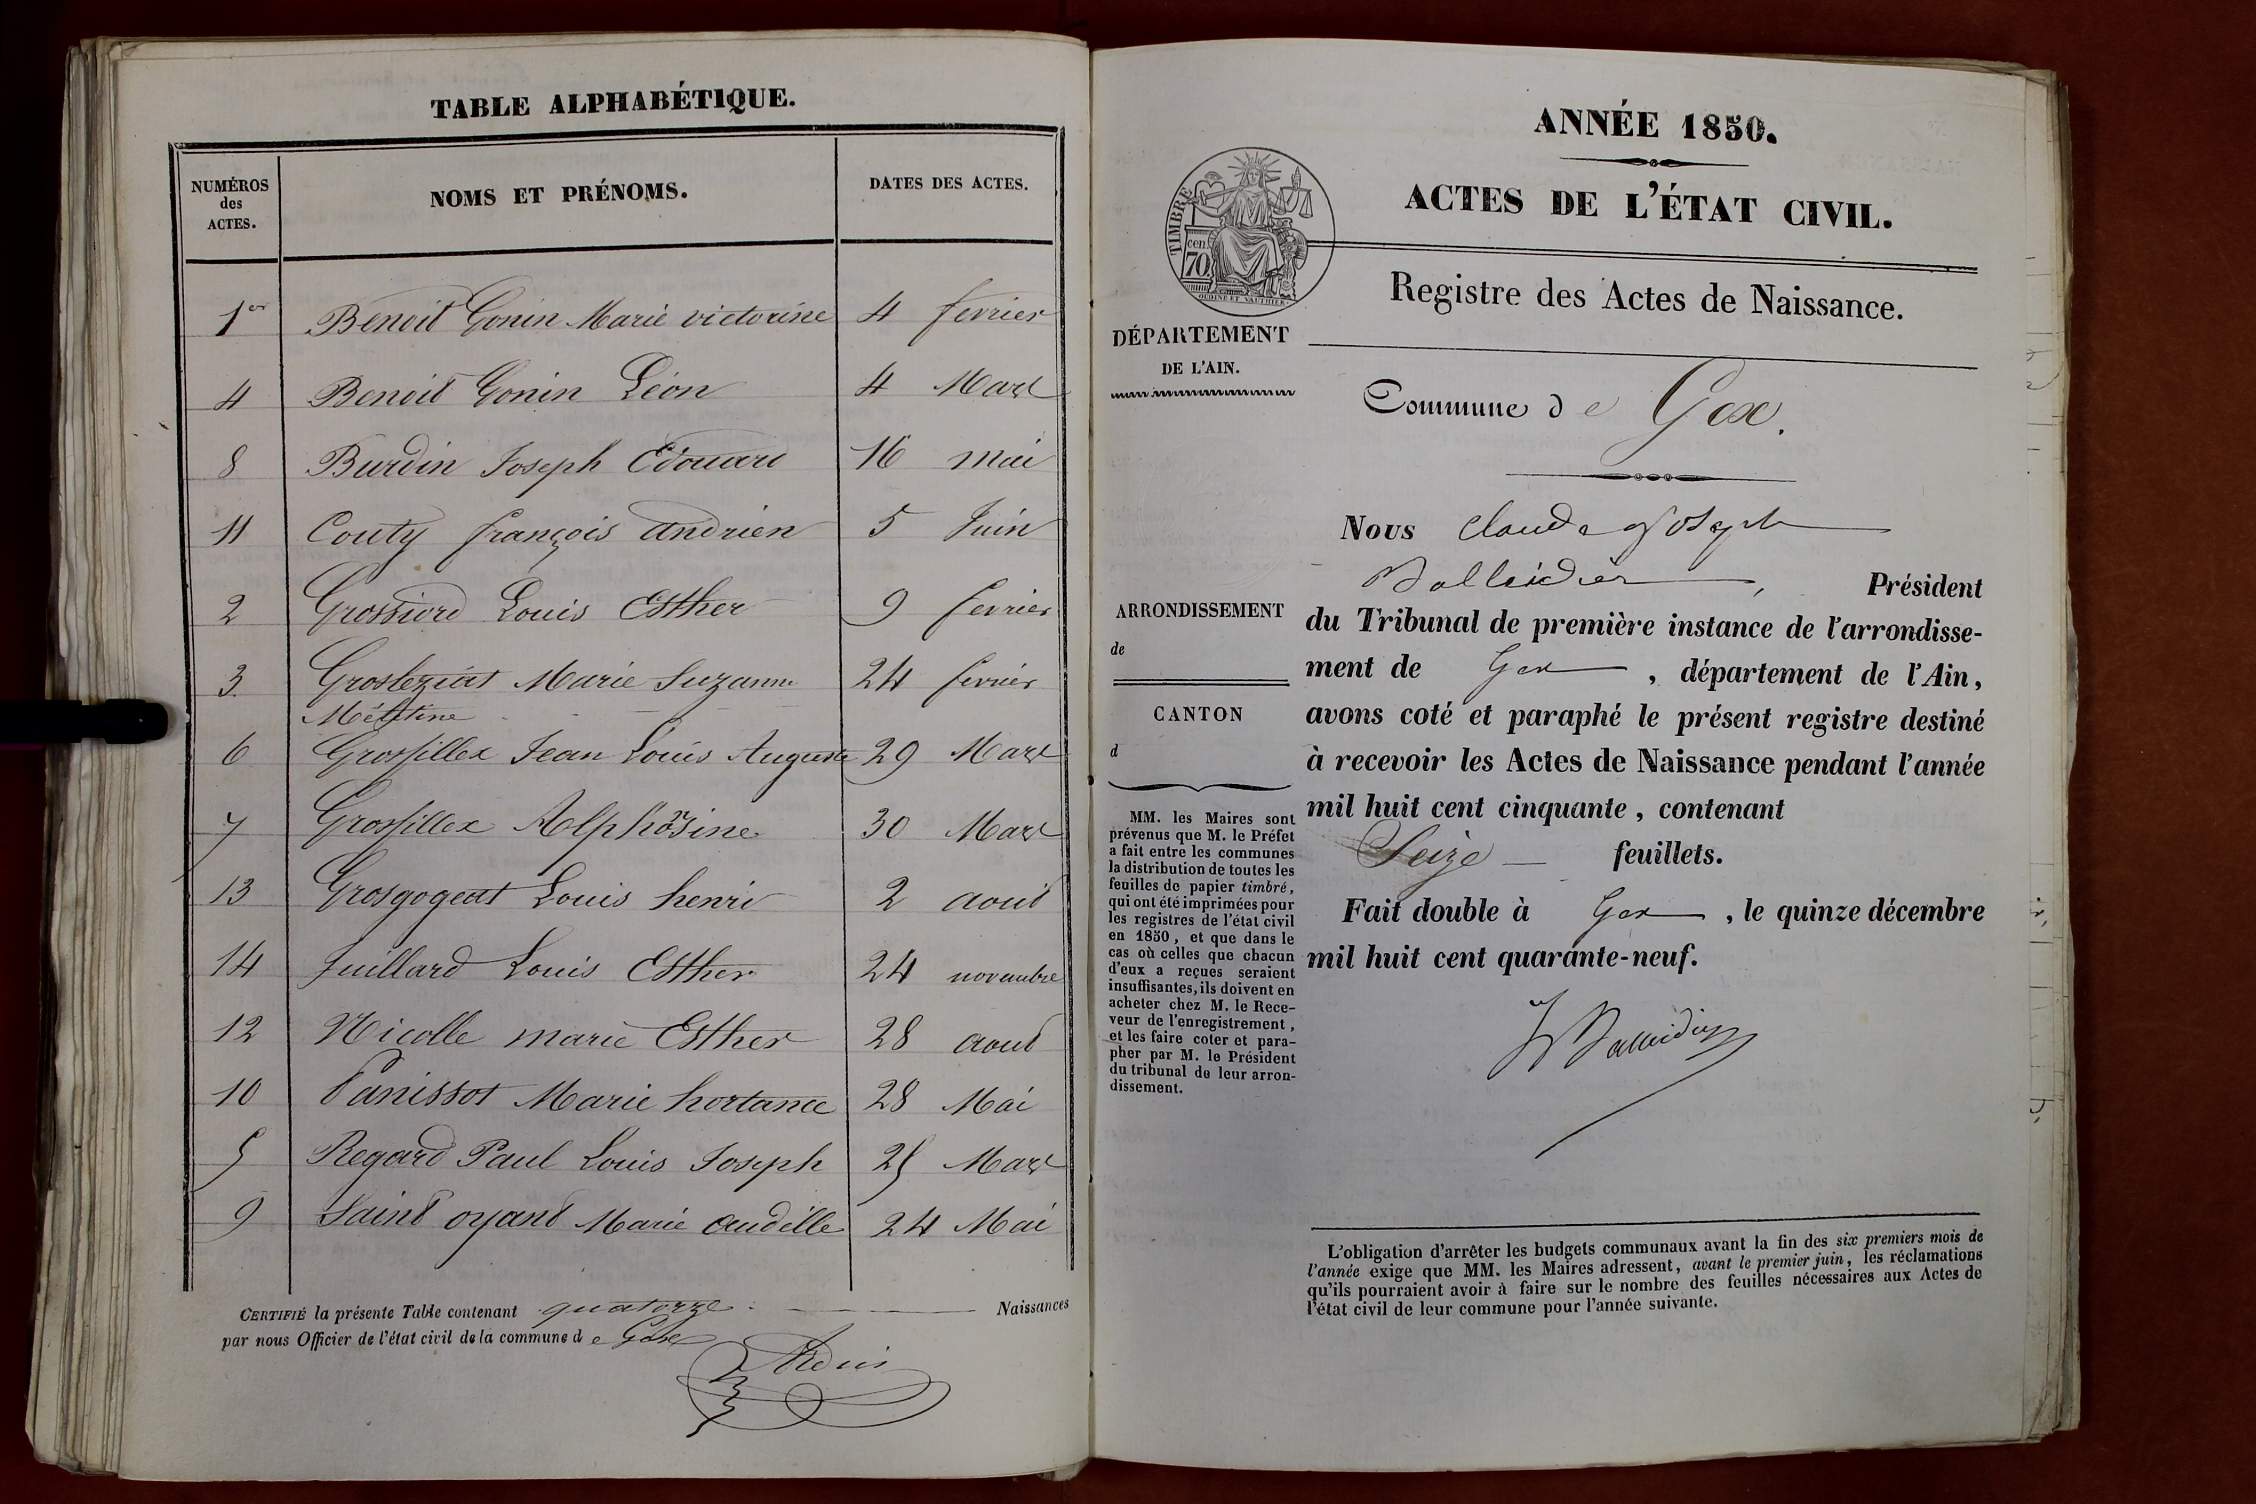 TABLE ALPHABÉTIQUE.
NUMÉROS
des
ACTES.
NOMS ET PRÉNOMS.
DATES DES ACTES.
1er Benoit Gonin Marie victorine 4 fevrier
4 Benoit Gonin Léon 4 Mars
8 Burdin Joseph Edouard 16 mai
11 Couty françois andrien 5 Juin
2 Grossiord Louis Esther 9 fevrier
3 Marie Suzanne 24 fevrier
6 Grosfillex Jean Louis Auguste 29 Mars
7 Grosfillex Alphonsine 30 Mars
13 Grosgogeat Louis henri 2 aout
14 Juillard Louis Esther 24 novembre
12 Nicolle marie Esther 28 aout
10 Panissot Marie hortance 28 Mai
5 Regard Paul Louis Joseph 25 Mars
9 Saint oyant Marie audille 24 Mai
CERTIFIÉ la présente Table contenant quatorze Naissances
par nous Officier de l'état civil de la commune de Gex
ANNÉE 1850.
ACTES DE L'ÉTAT CIVIL.
TIMBRE
70 cen.
OUDINÉ ET VAUTHIER
Registre des Actes de Naissance.
DÉPARTEMENT
DE L'AIN.
Commune de Gex.
Nous Claude Joseph
Balleidier, Président
du Tribunal de première instance de l'arrondisse-
ment de Gex, département de l'Ain,
avons coté et paraphé le présent registre destiné
à recevoir les Actes de Naissance pendant l'année
mil huit cent cinquante, contenant
Seize feuillets.
Fait double à Gex, le quinze décembre
mil huit cent quarante-neuf.
ARRONDISSEMENT
de
CANTON
d
MM. les Maires sont
prévenus que M. le Préfet
a fait entre les communes
la distribution de toutes les
feuilles de papier timbré,
qui ont été imprimées pour
les registres de l'état civil
en 1850, et que dans le
cas où celles que chacun
d'eux a reçues seraient
insuffisantes, ils doivent en
acheter chez M. le Rece-
veur de l'enregistrement,
et les faire coter et para-
pher par M. le Président
du tribunal de leur arron-
dissement.
L'obligation d'arrêter les budgets communaux avant la fin des six premiers mois de
l'année exige que MM. les Maires adressent, avant le premier juin, les réclamations
qu'ils pourraient avoir à faire sur le nombre des feuilles nécessaires aux Actes de
l'état civil de leur commune pour l'année suivante.